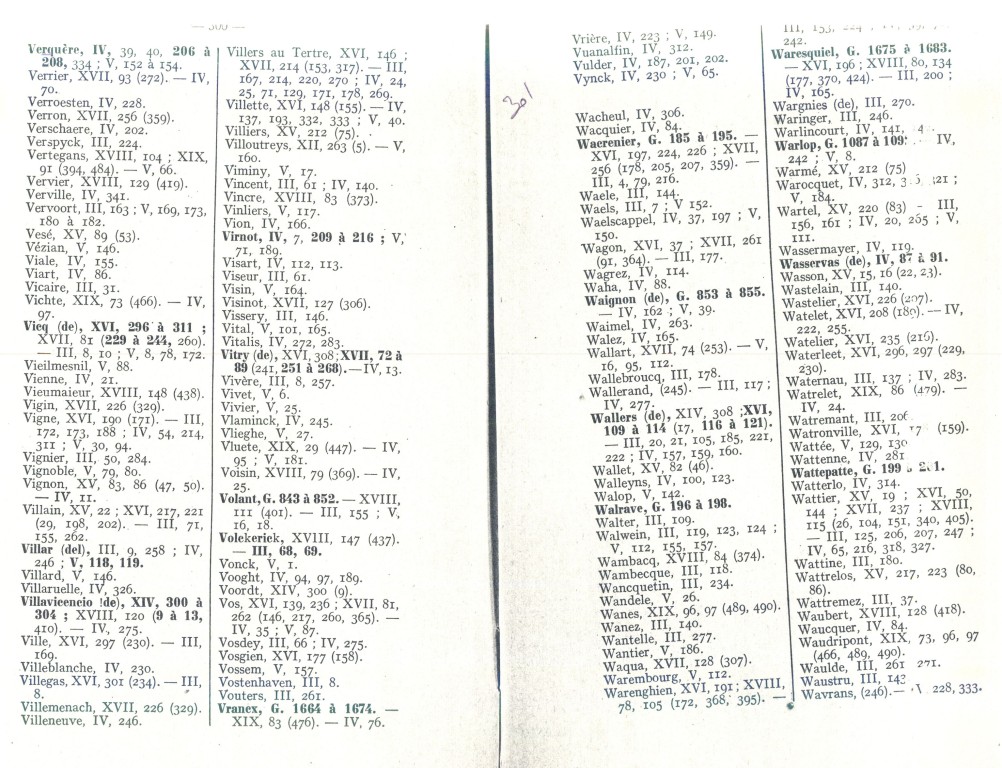 — 300 —
Verquère, IV, 39, 40, 206 à
208, 334 ; V, 152 à 154.
Verrier, XVII, 93 (272). — IV,
70.
Verroesten, IV, 228.
Verron, XVII, 256 (359).
Verschaere, IV, 202.
Verspyck, III, 224.
Vertegans, XVIII, 104 ; XIX,
91 (394, 484). — V, 66.
Vervier, XVIII, 129 (419).
Verville, IV, 341.
Vervoort, III, 163 ; V, 169, 173,
180 à 182.
Vesé, XV, 89 (53).
Vézian, V, 146.
Viale, IV, 155.
Viart, IV, 86.
Vicaire, III, 31.
Vichte, XIX, 73 (466). — IV,
97.
Vicq (de), XVI, 296 à 311 ;
XVII, 81 (229 à 244, 260).
— III, 8, 10 ; V, 8, 78, 172.
Vieilmesnil, V, 88.
Vienne, IV, 21.
Vieumaieur, XVIII, 148 (438).
Vigin, XVII, 226 (329).
Vigne, XVI, 190 (171). — III,
172, 173, 188 ; IV, 54, 214,
311 ; V, 30, 94.
Vignier, III, 50, 284.
Vignoble, V, 79, 80.
Vignon, XV, 83, 86 (47, 50).
— IV, 11.
Villain, XV, 22 ; XVI, 217, 221
(29, 198, 202). — III, 71,
155, 262.
Villar (del), III, 9, 258 ; IV,
246 ; V, 118, 119.
Villard, V, 146.
Villaruelle, IV, 326.
Villavicencio (de), XIV, 300 à
304 ; XVIII, 120 (9 à 13,
410). — IV, 275.
Ville, XVI, 297 (230). — III,
169.
Villeblanche, IV, 230.
Villegas, XVI, 301 (234). — III,
8.
Villemenach, XVII, 226 (329).
Villeneuve, IV, 246.
Villers au Tertre, XVI, 146 ;
XVII, 214 (153, 317). — III,
167, 214, 220, 270 ; IV, 24,
25, 71, 129, 171, 178, 269.
Villette, XVI, 148 (155). — IV,
137, 193, 332, 333 ; V, 40.
Villiers, XV, 212 (75).
Villoutreys, XII, 263 (5). — V,
160.
Viminy, V, 17.
Vincent, III, 61 ; IV, 140.
Vincre, XVIII, 83 (373).
Vinliers, V, 117.
Vion, IV, 166.
Virnot, IV, 7, 209 à 216 ; V,
71, 189.
Visart, IV, 112, 113.
Viseur, III, 61.
Visin, V, 164.
Visinot, XVII, 127 (306).
Vissery, III, 146.
Vital, V, 101, 165.
Vitalis, IV, 272, 283.
Vitry (de), XVI, 308 ; XVII, 72 à
89 (241, 251 à 268). — IV, 13.
Vivère, III, 8, 257.
Vivet, V, 6.
Vivier, V, 25.
Vlaminck, IV, 245.
Vlieghe, V, 27.
Vluete, XIX, 29 (447). — IV,
95 ; V, 181.
Voisin, XVIII, 79 (369). — IV,
25.
Volant, G. 843 à 852. — XVIII,
111 (401). — III, 155 ; V,
16, 18.
Volckerick, XVIII, 147 (437).
— III, 68, 69.
Vonck, V, 1.
Vooght, IV, 94, 97, 189.
Voordt, XIV, 300 (9).
Vos, XVI, 139, 236 ; XVII, 81,
262 (146, 217, 260, 365). —
IV, 35 ; V, 87.
Vosdey, III, 66 ; IV, 275.
Vosgien, XVI, 177 (158).
Vossem, V, 157.
Vostenhaven, III, 8.
Vouters, III, 261.
Vranex, G. 1664 à 1674. —
XIX, 83 (476). — IV, 76.
301
Vrière, IV, 223 ; V, 149.
Vuanalfin, IV, 312.
Vulder, IV, 187, 201, 202.
Vynck, IV, 230 ; V, 65.
Wacheul, IV, 306.
Wacquier, IV, 84.
Wacrenier, G. 185 à 195. —
XVI, 197, 224, 226 ; XVII,
256 (178, 205, 207, 359). —
III, 4, 79, 216.
Waele, III, 144.
Waels, III, 7 ; V 152.
Waelscappel, IV, 37, 197 ; V,
150.
Wagon, XVI, 37 ; XVII, 261
(91, 364). — III, 177.
Wagrez, IV, 114.
Waha, IV, 88.
Waignon (de), G. 853 à 855.
— IV, 162 ; V, 39.
Waimel, IV, 263.
Walez, IV, 165.
Wallart, XVII, 74 (253). — V,
16, 95, 112.
Wallebroucq, III, 178.
Wallerand, (245). — III, 117 ;
IV, 277.
Wallers (de), XIV, 308 ; XVI,
109 à 114 (17, 116 à 121).
— III, 20, 21, 105, 185, 221,
222 ; IV, 157, 159, 160.
Wallet, XV, 82 (46).
Walleyns, IV, 100, 123.
Walop, V, 142.
Walrave, G. 196 à 198.
Walter, III, 109.
Walwein, III, 119, 123, 124 ;
V, 112, 155, 157.
Wambacq, XVIII, 84 (374).
Wambecque, III, 118.
Wancquetin, III, 234.
Wandele, V, 26.
Wanes, XIX, 96, 97 (489, 490).
Wanez, III, 140.
Wantelle, III, 277.
Wantier, V, 186.
Waqua, XVII, 128 (307).
Warembourg, V, 112.
Warenghien, XVI, 191 ; XVIII,
78, 105 (172, 368, 395). —
III, 153, 224
242.
Waresquiel, G. 1675 à 1683.
— XVI, 196 ; XVIII, 80, 134
(177, 370, 424). — III, 200 ;
IV, 165.
Wargnies (de), III, 270.
Waringer, III, 246.
Warlincourt, IV, 141,
Warlop, G. 1087 à 109 IV,
242 ; V, 8.
Warmé, XV, 212 (75)
Warocquet, IV, 312, 321 ;
V, 184.
Wartel, XV, 220 (83) - III,
156, 161 ; IV, 20, 265 ; V,
111.
Wassermayer, IV, 119.
Wasservas (de), IV, 87 à 91.
Wasson, XV, 15, 16 (22, 23).
Wastelain, III, 140.
Wastelier, XVI, 226 (207).
Watelet, XVI, 208 (189). — IV,
222, 255.
Watelier, XVI, 235 (216).
Waterleet, XVI, 296, 297 (229,
230).
Waternau, III, 137 ; IV, 283.
Watrelet, XIX, 86 (479). —
IV, 24.
Watremant, III, 206
Watronville, XVI, (159).
Wattée, V, 129, 130
Wattenne, IV, 281
Wattepatte, G. 199
Watterlo, IV, 314.
Wattier, XV, 19 ; XVI, 50,
144 ; XVII, 237 ; XVIII,
115 (26, 104, 151, 340, 405).
— III, 125, 206, 207, 247 ;
IV, 65, 216, 318, 327.
Wattine, III, 180.
Wattrelos, XV, 217, 223 (80,
86).
Wattremez, III, 37.
Waubert, XVIII, 128 (418).
Waucquer, IV, 84.
Waudripont, XIX, 73, 96, 97
(466, 489, 490).
Waulde, III, 261 271.
Waustru, III, 143
Wavrans, (246).— 228, 333.